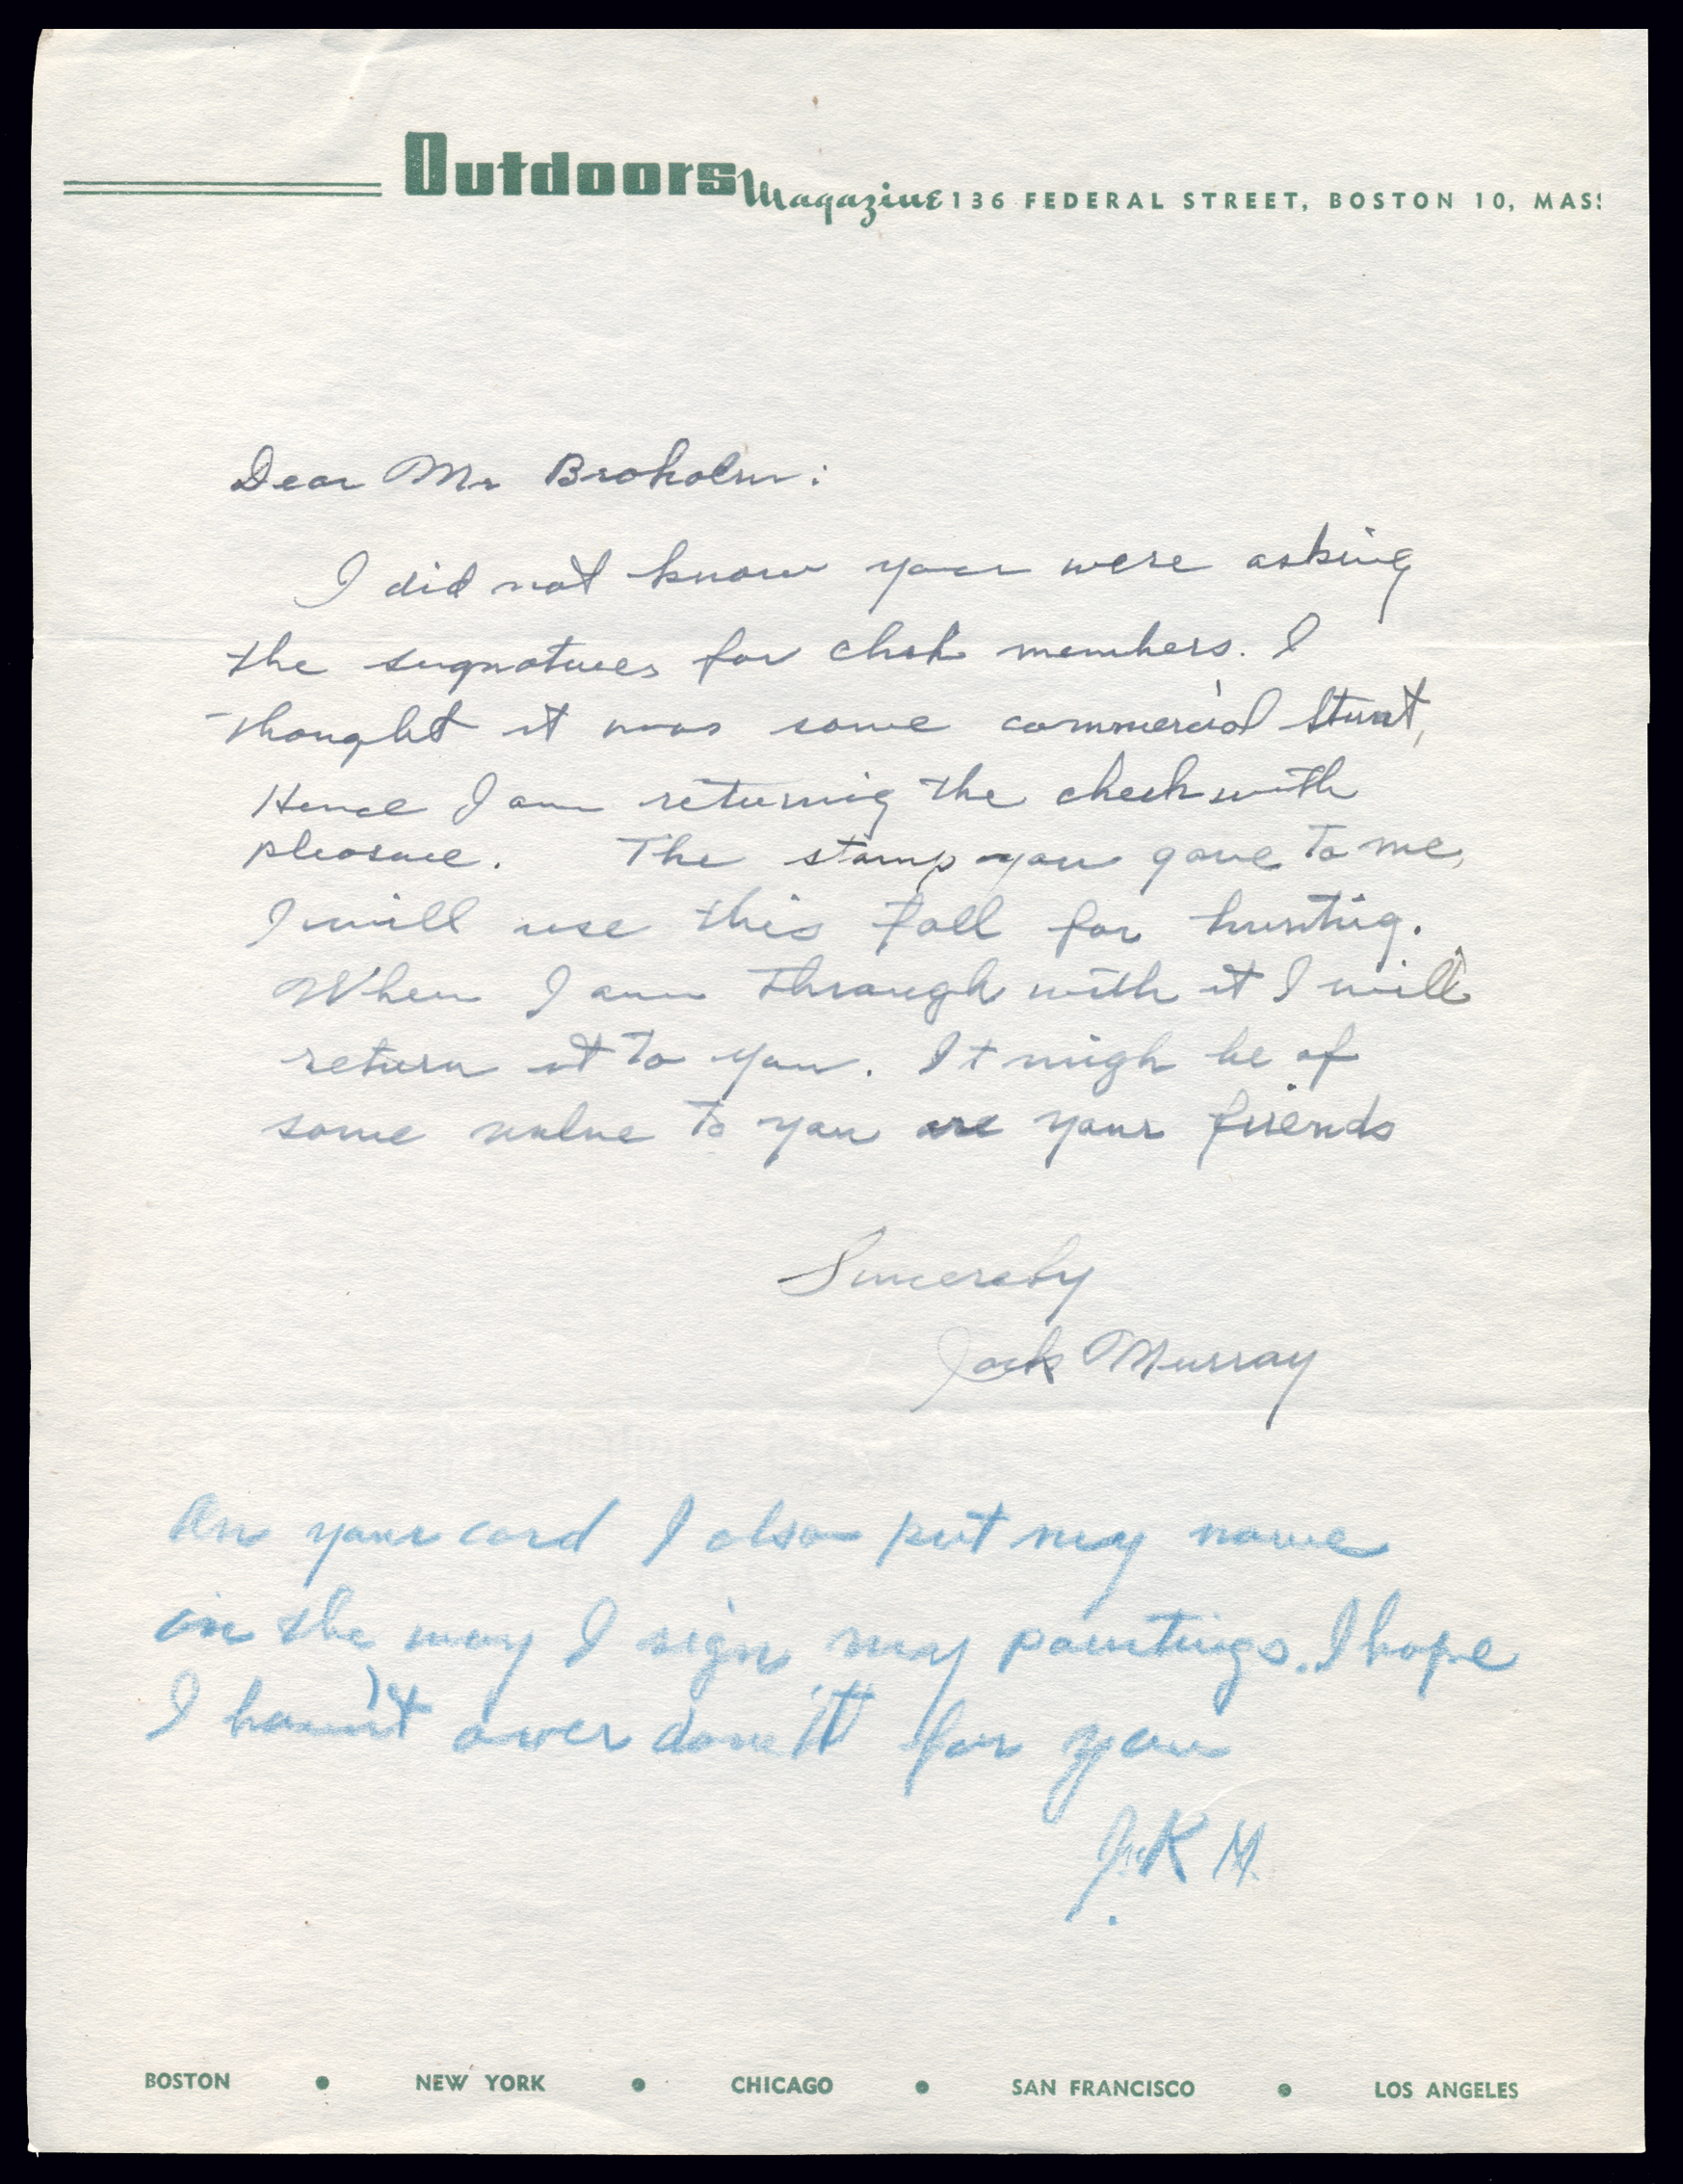 Outdoors Magazine 136 FEDERAL STREET, BOSTON 10, MASS
Dear Mr Broholm:
I did not know you were asking
the signatures for club members. I
thought it was some commercial stunt,
Hence I am returning the check with
pleasure. The stamp you gave to me,
I will use this fall for hunting.
When I am through with it I will
return it to you. It migh be of
some value to you are your friends
Sincerely
Jack Murray
On your card I also put my name
in the way I sign my paintings. I hope
I havn't over done it for you
Jack M.
BOSTON • NEW YORK • CHICAGO • SAN FRANCISCO • LOS ANGELES